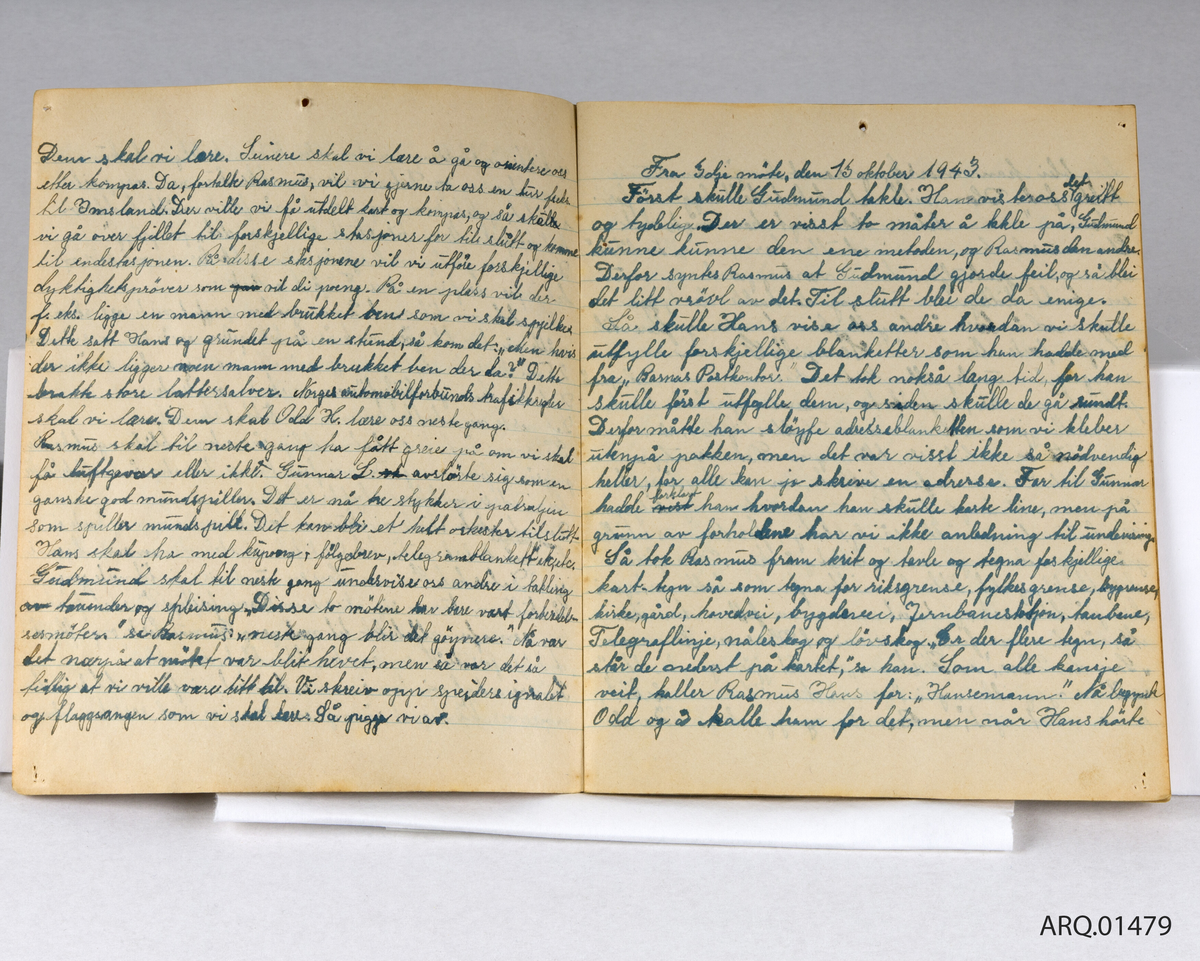 Dem skal vi lære. Seinere skal vi lære å gå og orientere oss
etter kompas. Da, fortalte Rasmus, vil vi gjerne ta oss en tur
til Imsland. Der ville vi få utdelt kart og kompas, og så skulle
vi gå over fjillet til forskjellige stasjoner for til slutt og komme
til endestasjonen. På disse stasjonene vil vi utføre forskjellige
dyktighetsprøver som vil di poeng. På en plass vil der
f. eks. ligge en mann med brukket ben som vi skal spjelke.
Dette satt Hans og grundet på en stund, så kom det: „Men hvis
der ikke ligger noen mann med brukket ben der da?" Dette
brakte store lattersalver. Norges automobilforbunds
skal vi lære. Dem skal Odd H. lære oss neste gang.
Rasmus skal til neste gang ha fått greie på om vi skal
få luftgevær eller ikke. Gunnar L. avslørte sig som en
ganske god mundspiller. Det er nå tre stykker i patruljen
som spiller mundspill. Det kan bli et helt orkester tilslutt.
Hans skal ha med følgebrev, telegramblankett
Gudmund skal til neste gang undervise oss andre i takling
av tauender og spleising. „Disse to møtene har bare vært forberedel-
sesmøter" sa Rasmus: „neste gang blir det gøyere." Nå var
det nærpå at møtet var blit hevet, men så var det så
tidlig at vi ville være litt til. Vi skreiv opp speidersignalet
og flaggsangen som vi skal lære. Så pigge vi av.
Fra 3dje möte, den 15 oktober 1943.
Först skulle Gudmund takle. Han viste oss det greitt
og tydelig. Der er visst to måter å takle på, Gudmund
kunne kunne den ene metoden, og Rasmus den andre.
Derfor syntes Rasmus at Gudmund gjorde feil, og så blei
det litt vrövl av det. Til slutt blei de da enige.
Så skulle Hans vise oss andre hvordan vi skulle
utfylle forskjellige blanketter som han hadde med
fra „Barnas Postkontor." Det tok nokså lang tid, for han
skulle först utfylle dem, og siden skulle de gå rundt.
Derfor måtte han slöyfe adresseblanketten som vi kleber
utenpå pakken, men det var visst ikke så nödvendig
heller, for alle kan jo skrive en adresse. Far til Gunnar
hadde forklart han hvordan han skulle kaste line, men på
grunn av forholdene har vi ikke anledning til undervising.
Så tok Rasmus fram krit og tavle og tegna forskjellige
kart-tegn så som tegna for riksgrense, fylkesgrense, bygrense,
kirke, gård, hovedvei, bygdevei, Jernbanestasjon, taubane,
Telegraflinje, nåleskog og lövskog. „Er der flere tegn, så
står de nederst på kartet," sa han. Som alle kansje
veit, kaller Rasmus Hans for: „Hansemann." Nå begynte
Odd og å kalle ham for det, men når Hans hörte
ARQ.01479